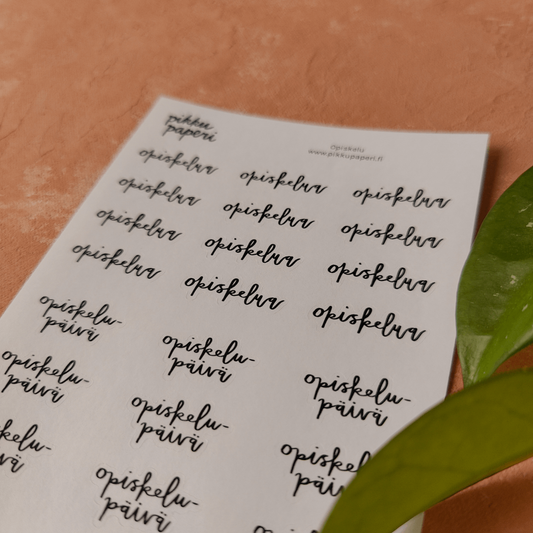 pikku
paperi
Opiskelu
www.pikkupaperi.fi
opiskelua opiskelua opiskelua
opiskelua opiskelua opiskelua
opiskelua opiskelua opiskelua
opiskelua opiskelua opiskelua
opiskelu- opiskelu- opiskelu-
päivä päivä päivä
opiskelu- opiskelu- opiskel
päivä päivä päi
skelu- opiskelu-
vä päivä